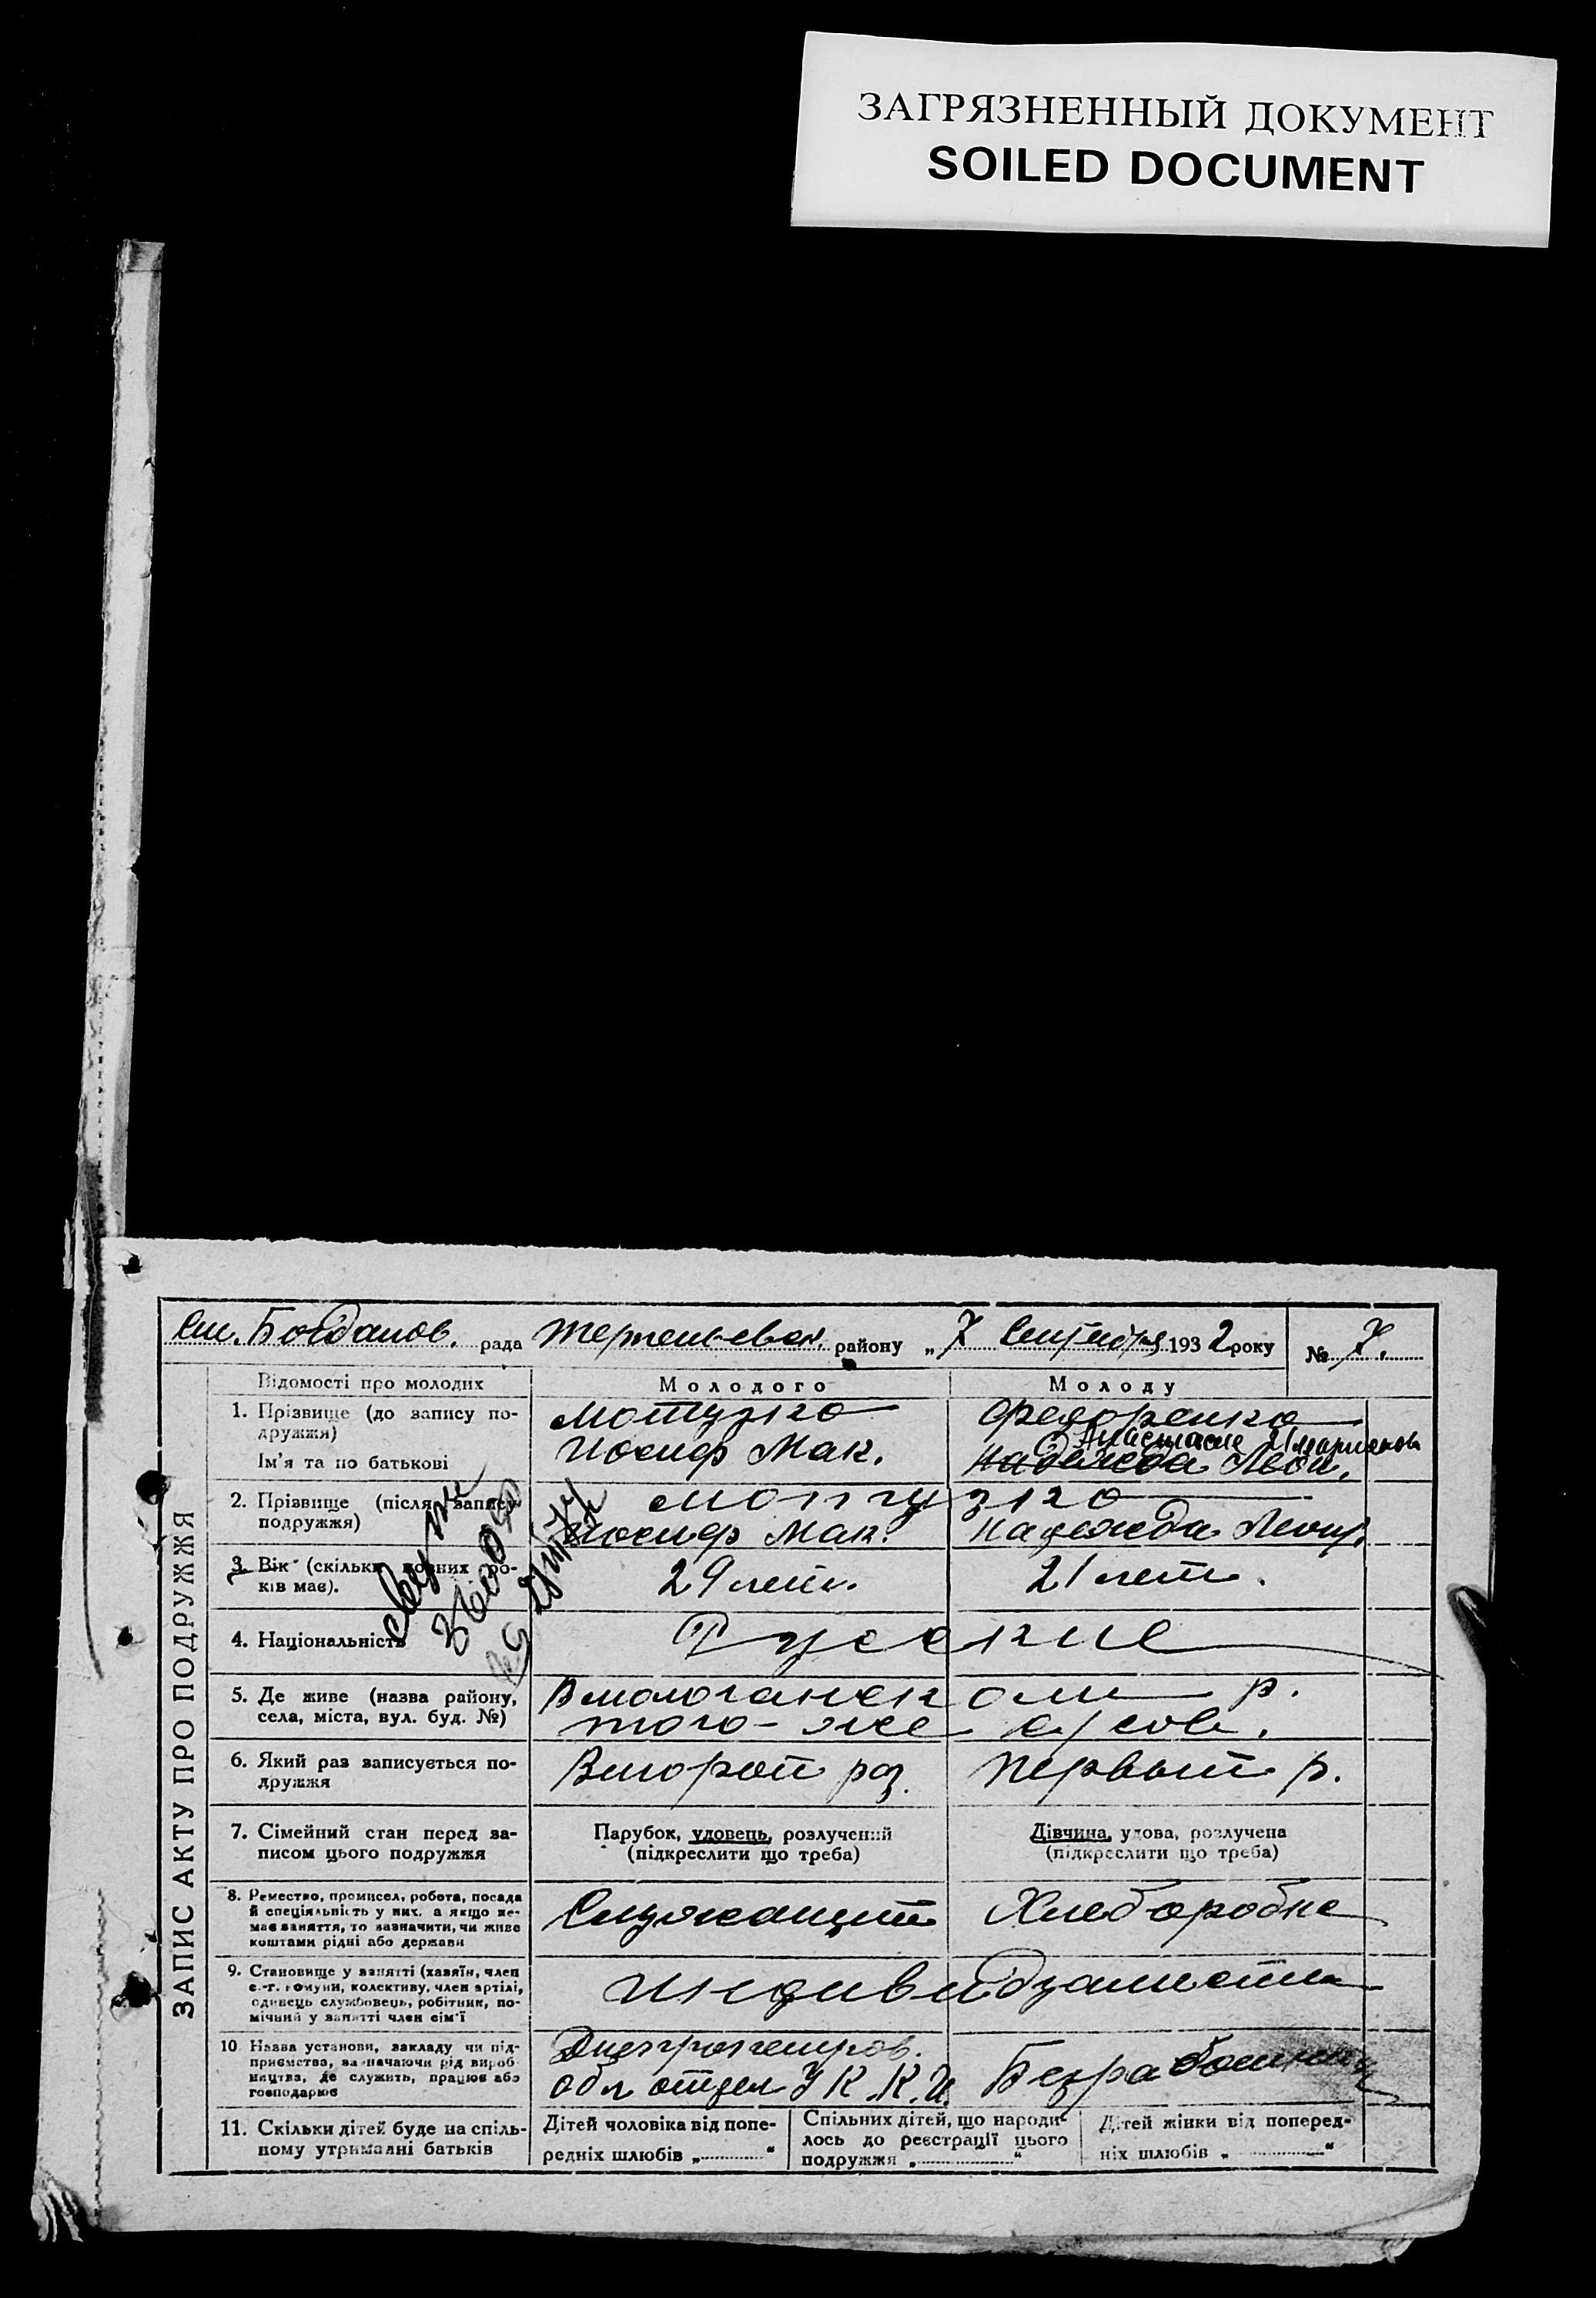 ЗАГРЯЗНЕННЫЙ ДОКУМЕНТ
SOILED DOCUMENT
Ст. Богданов. рада Терпеньевск. району „7 Сентября 1932 року № 7.
ЗАПИС АКТУ ПРО ПОДРУЖЖЯ
Відомості про молодих
Молодого
Молоду
1. Прізвище (до запису подружжя)
Ім'я та по батькові
Мотузко
Иосиф Мак.
Федоренко
Анастасие
Надежда Леон.
2. Прізвище (після запису подружжя)
Мотузко
Иосиф Мак.
Надежда Леонт.
3. Вік (скільки повних років має).
29 лет.
21 лет.
4. Національність
Русские
5. Де живе (назва району, села, міста, вул. буд. №)
В молочанском р.
того-же с/сов.
6. Який раз записується подружжя
Второй раз.
Первый р.
7. Сімейний стан перед записом цього подружжя
Парубок, удовець, розлучений
(підкреслити що треба)
Дівчина, удова, розлучена
(підкреслити що треба)
8. Ремество, промисел, робота, посада й спеціяльність у них. а якщо немає заняття, то зазначити, чи живе коштами рідні або держави
Служащий
Хлеборобка
9. Становище у занятті (хазяїн, член с.-г. комуни, колективу, член артілі, одинець службовець, робітник, помічний у занятті член сім'ї
Индивидуалисты
10 Назва установи, закладу чи підприємства, зазначаючи рід виробництва, де служить, працює або господарює
Днепропетров.
обл отдел У К.К.И.
Безработный
11. Скільки дітей буде на спільному утриманні батьків
Дітей чоловіка від попередніх шлюбів „ “
Спільних дітей, що народилось до реєстрації цього подружжя „ “
Дітей жінки від попередніх шлюбів „ “